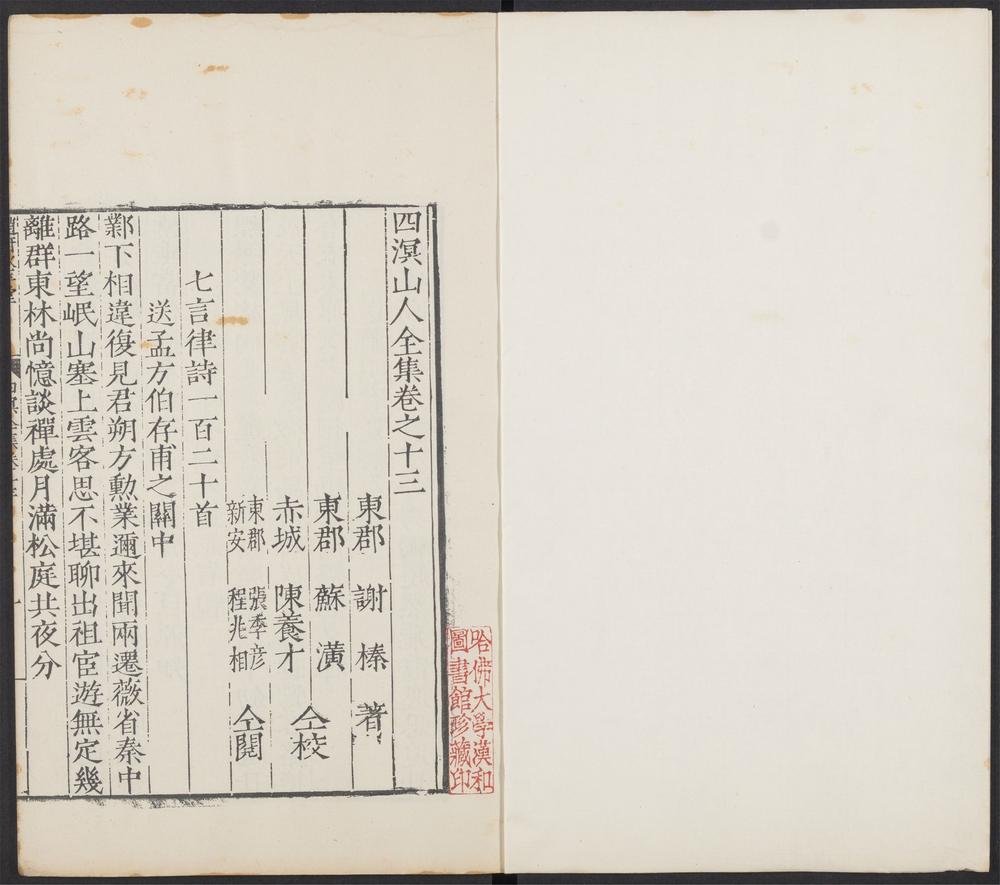 四溟山人全集卷之十三
東郡 謝榛 著
東郡 蘇潢
赤城 陳養才 仝校
東郡 張季彦
新安 程兆相 仝閱
七言律詩一百二十首
送孟方伯存甫之關中
鄴下相違復見君朔方勲業邇來聞兩遷薇省秦中
路一望岷山塞上雲客思不堪聊出祖宦遊無定幾
離群東林尚憶談禪處月滿松庭共夜分
哈佛大學漢和
圖書館珍藏印